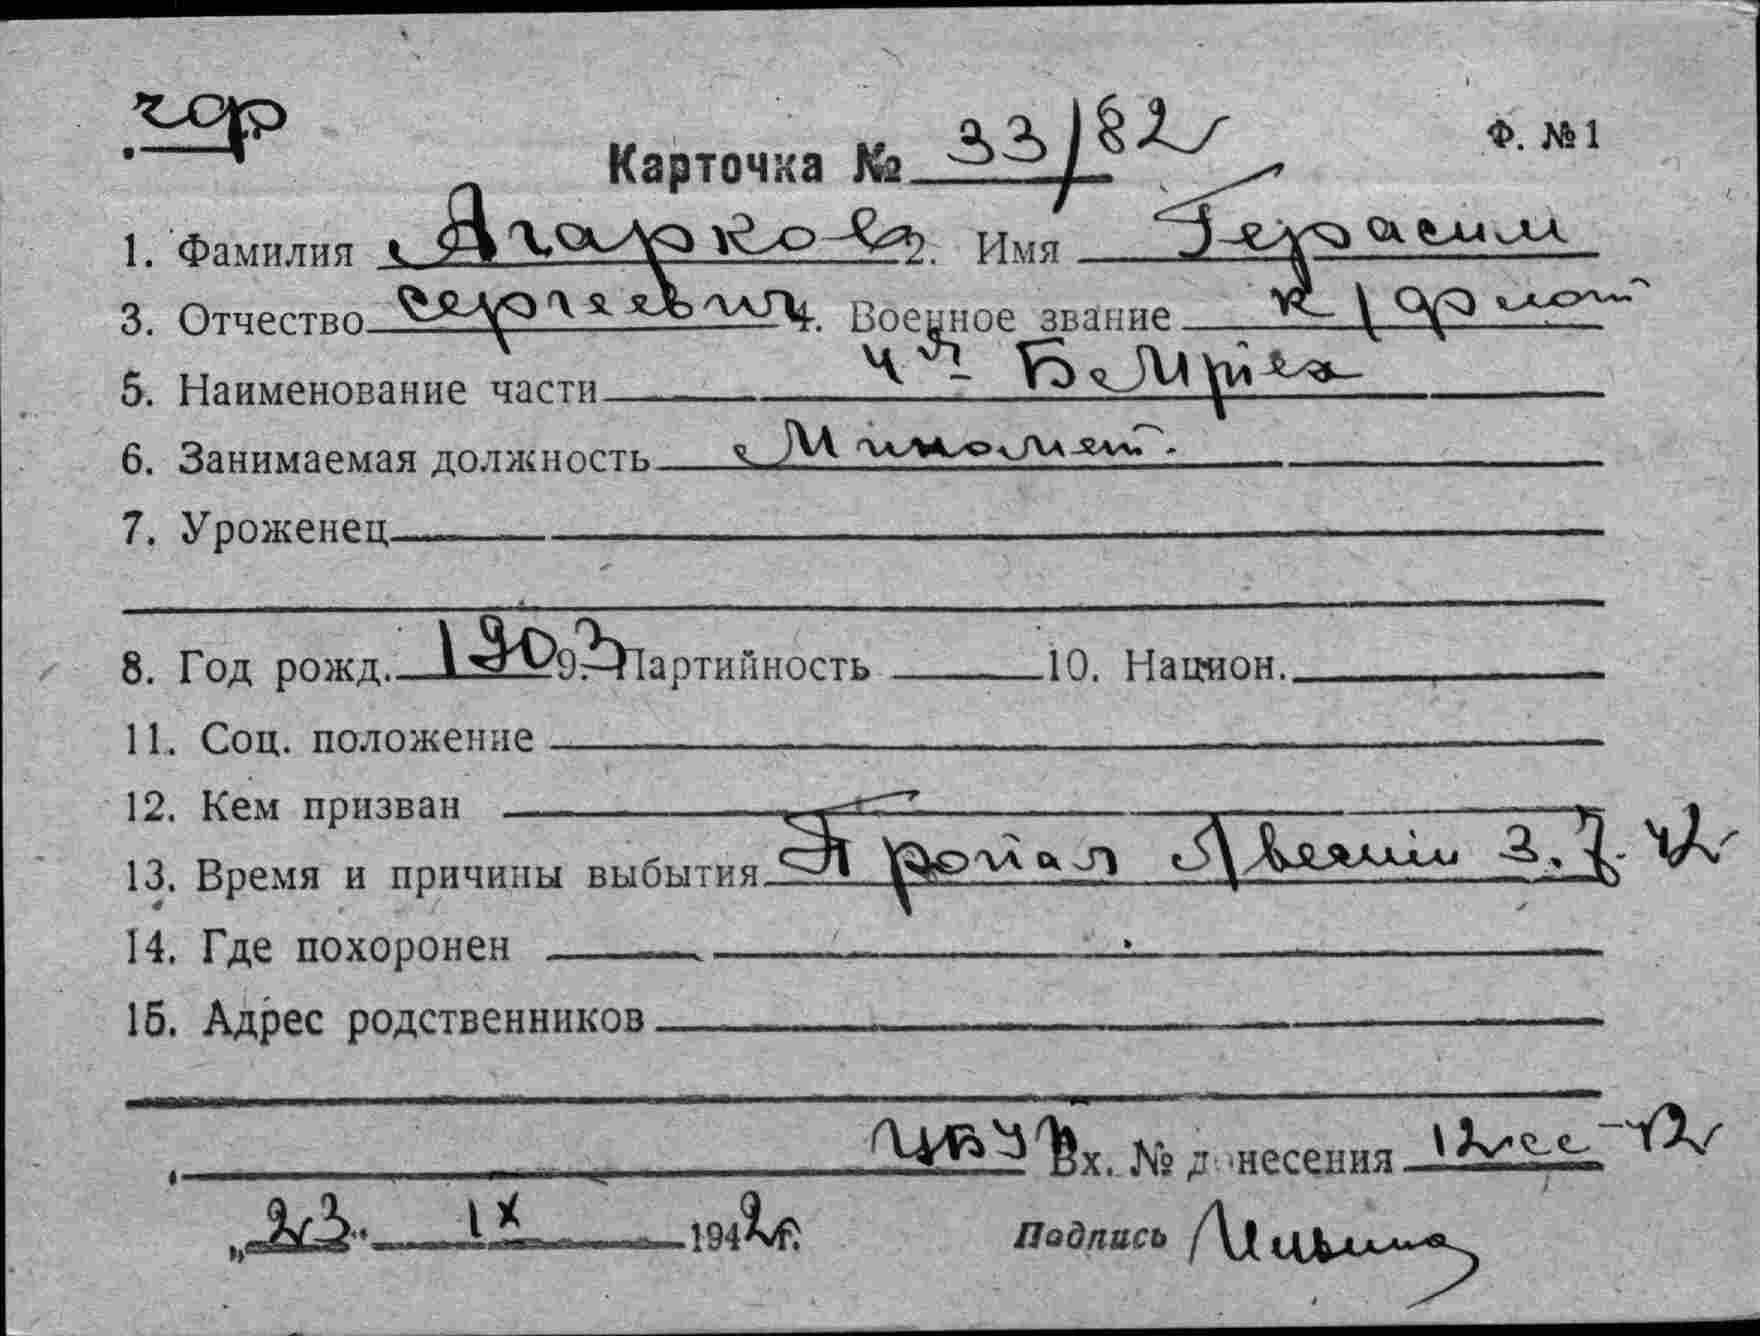 Ф. №1
Карточка № 33/82
1. Фамилия Агарков 2. Имя Герасим
3. Отчество Сергеевич 4. Военное звание
5. Наименование части
6. Занимаемая должность Миномет.
7. Уроженец
8. Год рожд. 1903 9. Партийность 10. Национ.
11. Соц. положение
12. Кем призван
13. Время и причины выбытия Пропал 3.7.42
14. Где похоронен
15. Адрес родственников
Вх. № донесения 12сс-42
„23" IX 1942г. Подпись